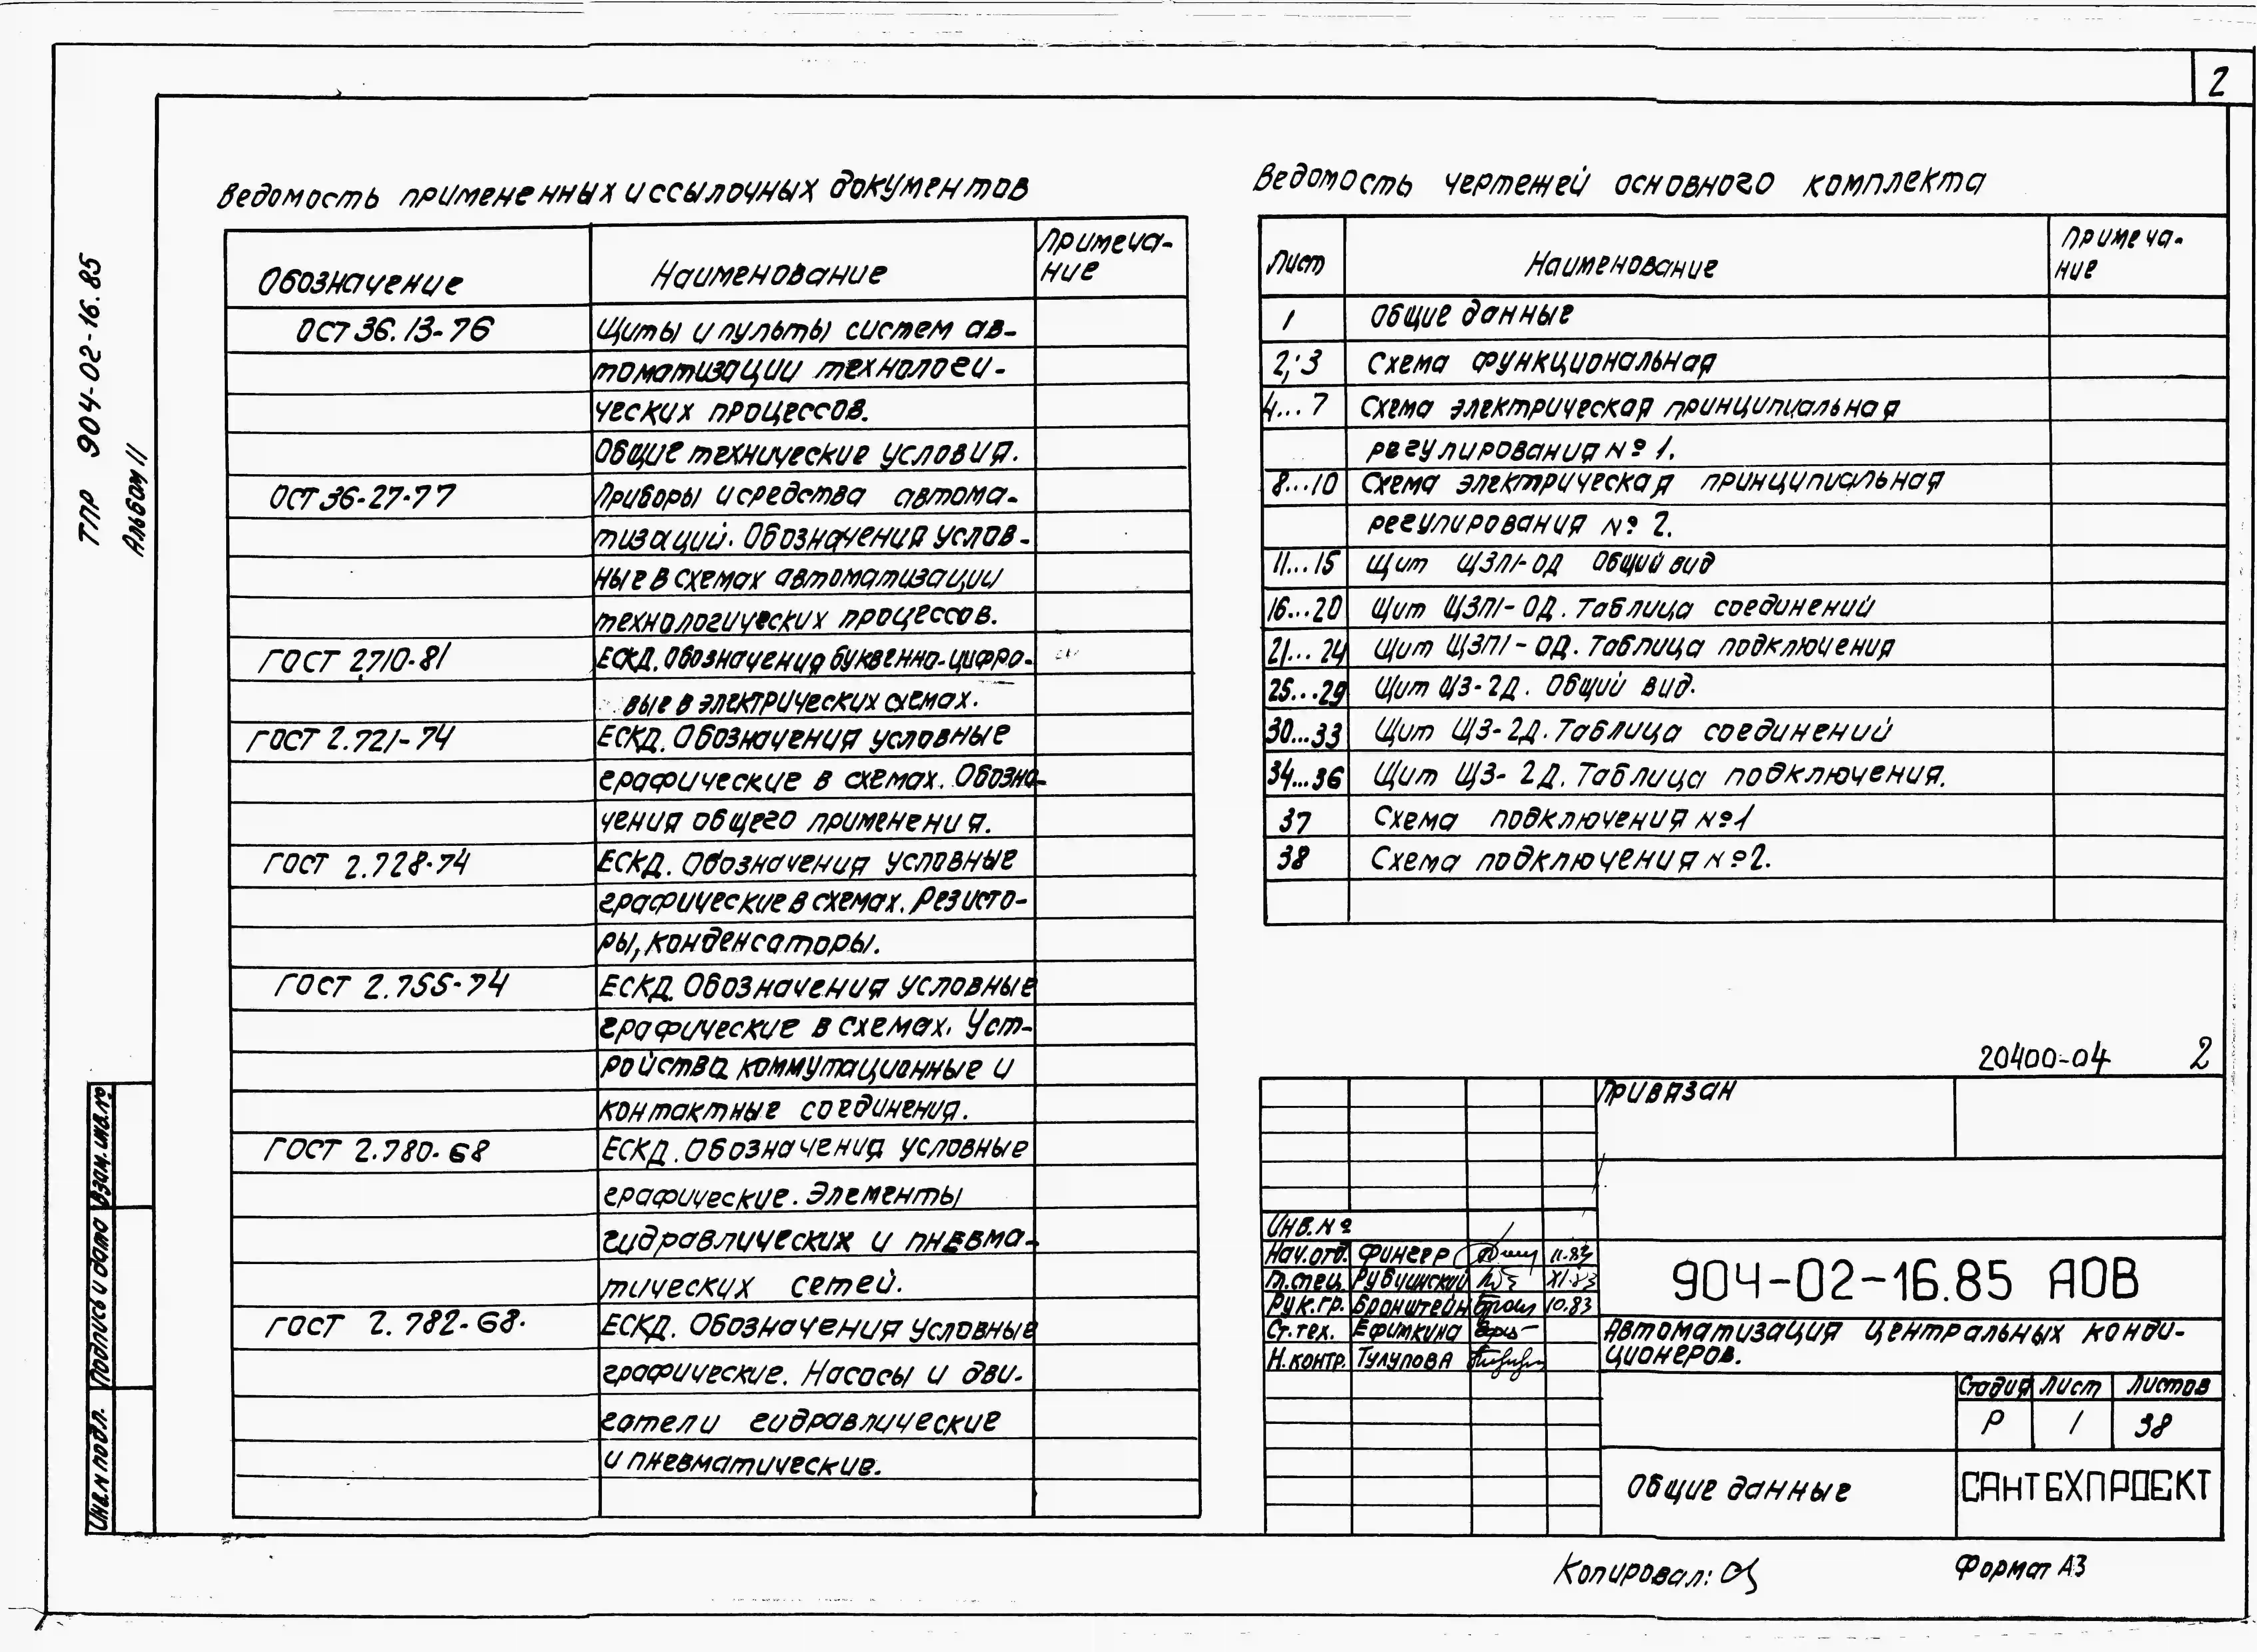 2
ТПР 904-02-16.85
Альбом II
Ведомость примененных и ссылочных документов
Обозначение Наименование Примеча-
ние
ОСТ 36.13-76 Щиты и пульты систем ав-
томатизации технологи-
ческих процессов.
Общие технические условия.
ОСТ 36-27-77 Приборы и средства автома-
тизаций. Обозначения услов-
ные в схемах автоматизации
технологических процессов.
ГОСТ 2.710-81 ЕСКД. Обозначения буквенно-цифро-
вые в электрических схемах.
ГОСТ 2.721-74 ЕСКД. Обозначения условные
графические в схемах. Обозна-
чения общего применения.
ГОСТ 2.728-74 ЕСКД. Обозначения условные
графические в схемах. Резисто-
ры, конденсаторы.
ГОСТ 2.755-74 ЕСКД. Обозначения условные
графические в схемах. Уст-
ройства коммутационные и
контактные соединения.
ГОСТ 2.780-68 ЕСКД. Обозначения условные
графические. Элементы
гидравлических и пневма-
тических сетей.
ГОСТ 2.782-68. ЕСКД. Обозначения условные
графические. Насосы и дви-
гатели гидравлические
и пневматические.
Ведомость чертежей основного комплекта
Лист Наименование Примеча-
ние
1 Общие данные
2; 3 Схема функциональная
4...7 Схема электрическая принципиальная
регулирования №1.
8...10 Схема электрическая принципиальная
регулирования №2.
11...15 Щит ЩЗП1-ОД Общий вид
16...20 Щит ЩЗП1-ОД. Таблица соединений
21...24 Щит ЩЗП1-ОД. Таблица подключения
25...29 Щит ЩЗ-2Д. Общий вид.
30...33 Щит ЩЗ-2Д. Таблица соединений
34...36 Щит ЩЗ-2Д. Таблица подключения.
37 Схема подключения №1
38 Схема подключения №2.
20400-04 2
Привязан
Инв.№
Нач.отд. Фингер 11.83
Гл.спец. Рубчинский XI.83
Рук.гр. Бронштейн 10.83
Ст.тех. Ефимкина
Н.контр. Тулупова
904-02-16.85 АОВ
Автоматизация центральных конди-
ционеров.
Стадия Лист Листов
Р 1 38
Общие данные
САНТЕХПРОЕКТ
Инв.№ подл. Подпись и дата Взам.инв.№
Копировал:
Формат А3